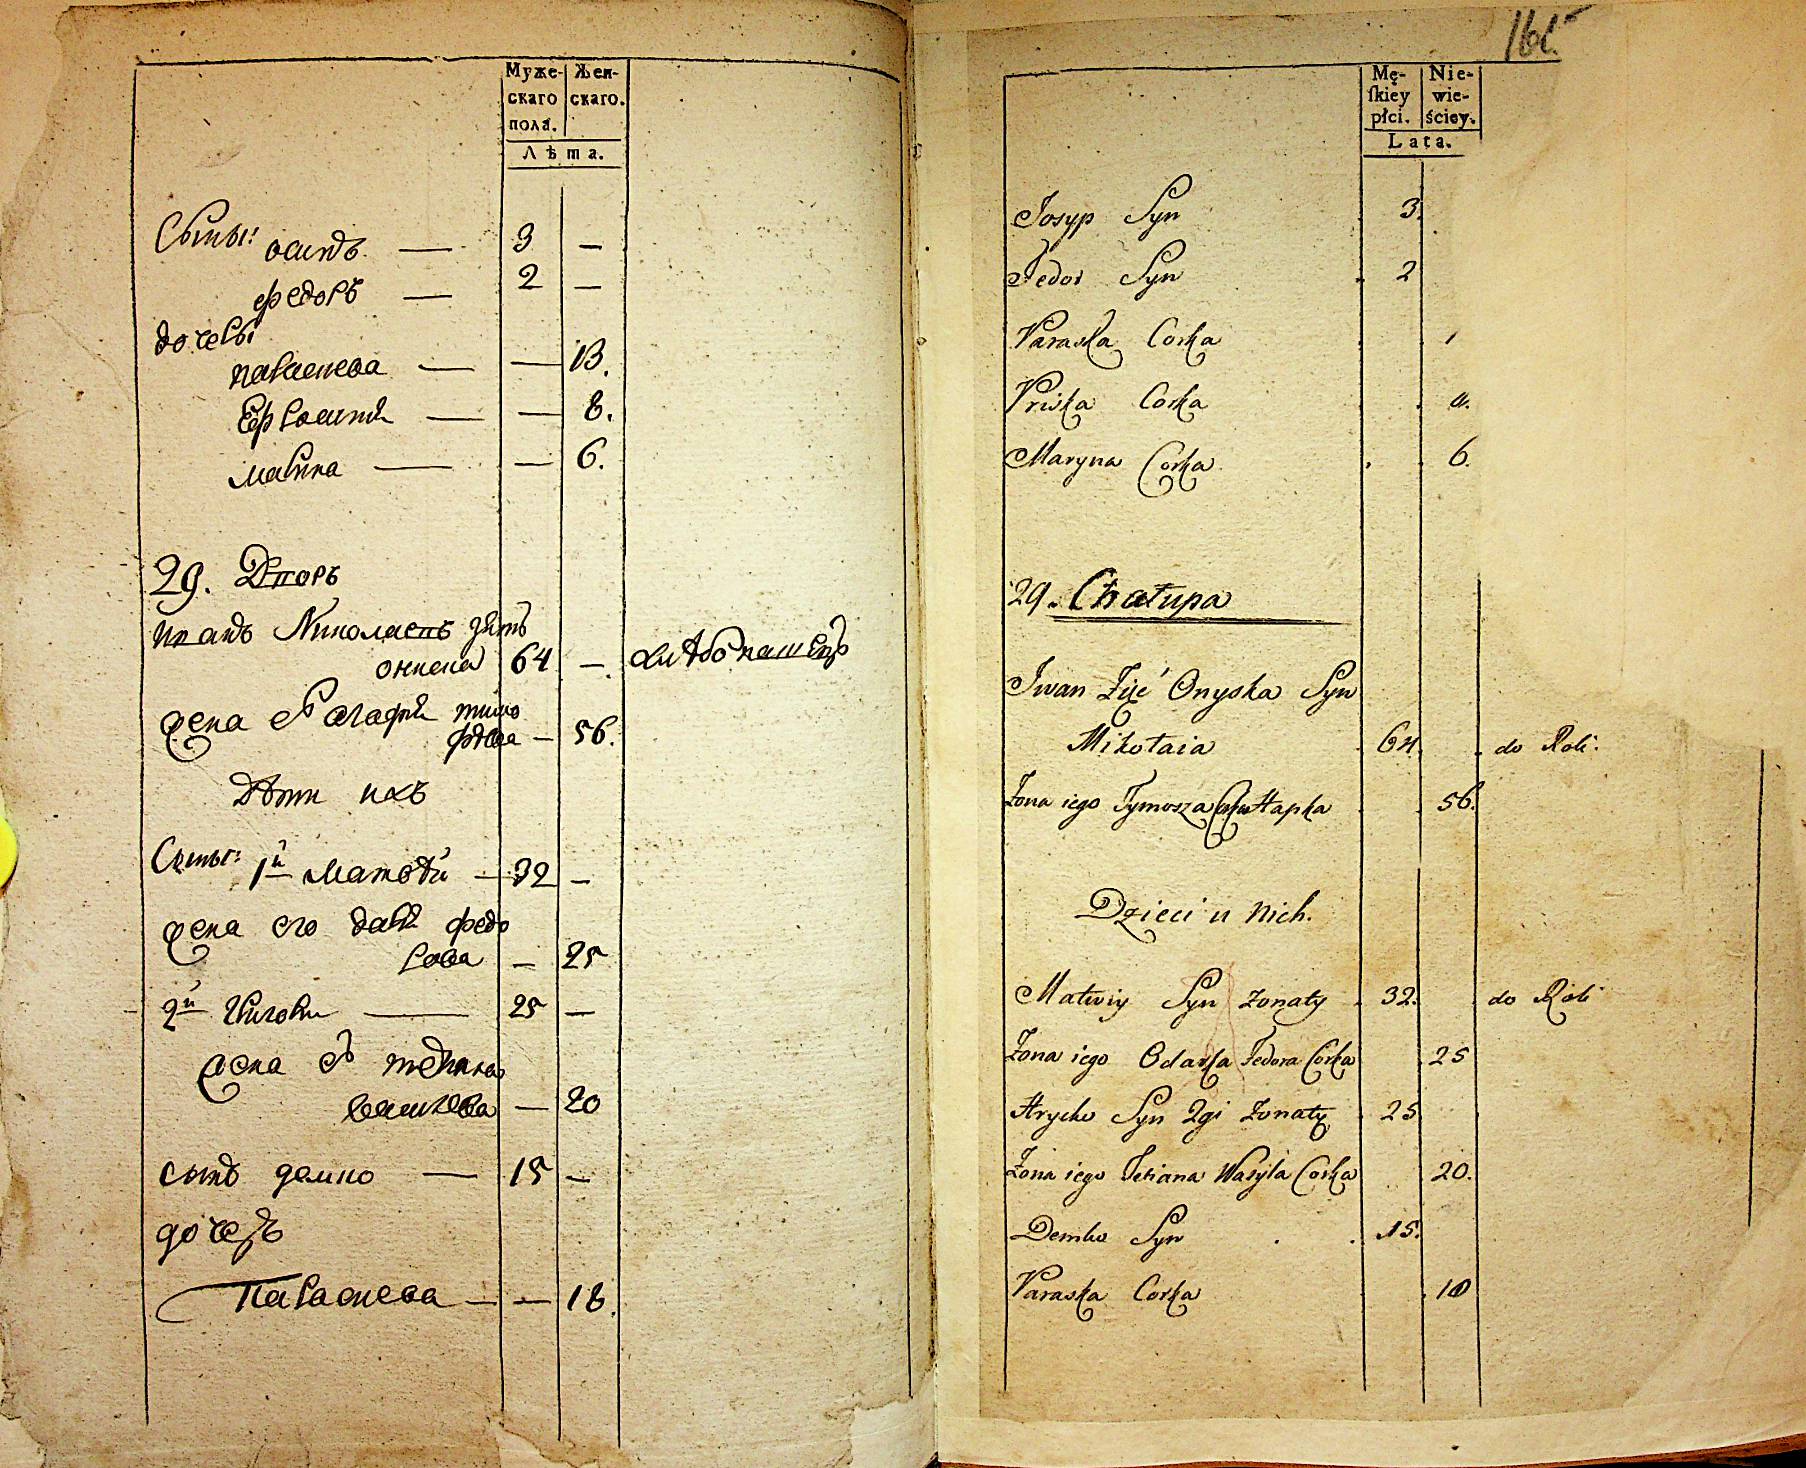 Муже-
скаго
пола.
Жен-
скаго.
Лѣта.
Сыны:
осипъ — 3 —
федоръ — 2 —
дочеры
параскева — — 13.
Ефросинія — — 8.
марина — — 6.
29. Дворъ
иванъ Николаевъ зять
ониска 64 — хлѣбопашецъ
жена его агафія тимо
феева — 56.
Дѣти ихъ
Сыны: 1й матвѣй — 32 —
жена его дарія федо
рова — 25
2й Григорій — 25 —
жена его тетіана
василева — 20
сынъ демко — 15 —
дочерь
Параскева — — 18.
Mę-
skiey
płci.
Nie-
wie-
ściey.
Lata.
Iosyp Syn 3.
Fedor Syn 2
Paraska Corka 1
Priska Corka
Maryna Corka 6.
29. Chałupa
Iwan Zięć Onyska Syn
Mikołaia 64. do Roli.
Żona iego Tymosza Corka Hapka 56.
Dzieci u Nich.
Matwiy Syn żonaty 32. do Roli
Żona iego Odarka Fedora Corka 25
Hrycko Syn 2gi żonaty 25
Żona iego Tetiana Wasyla Corka 20.
Demko Syn 15.
Paraska Corka 18